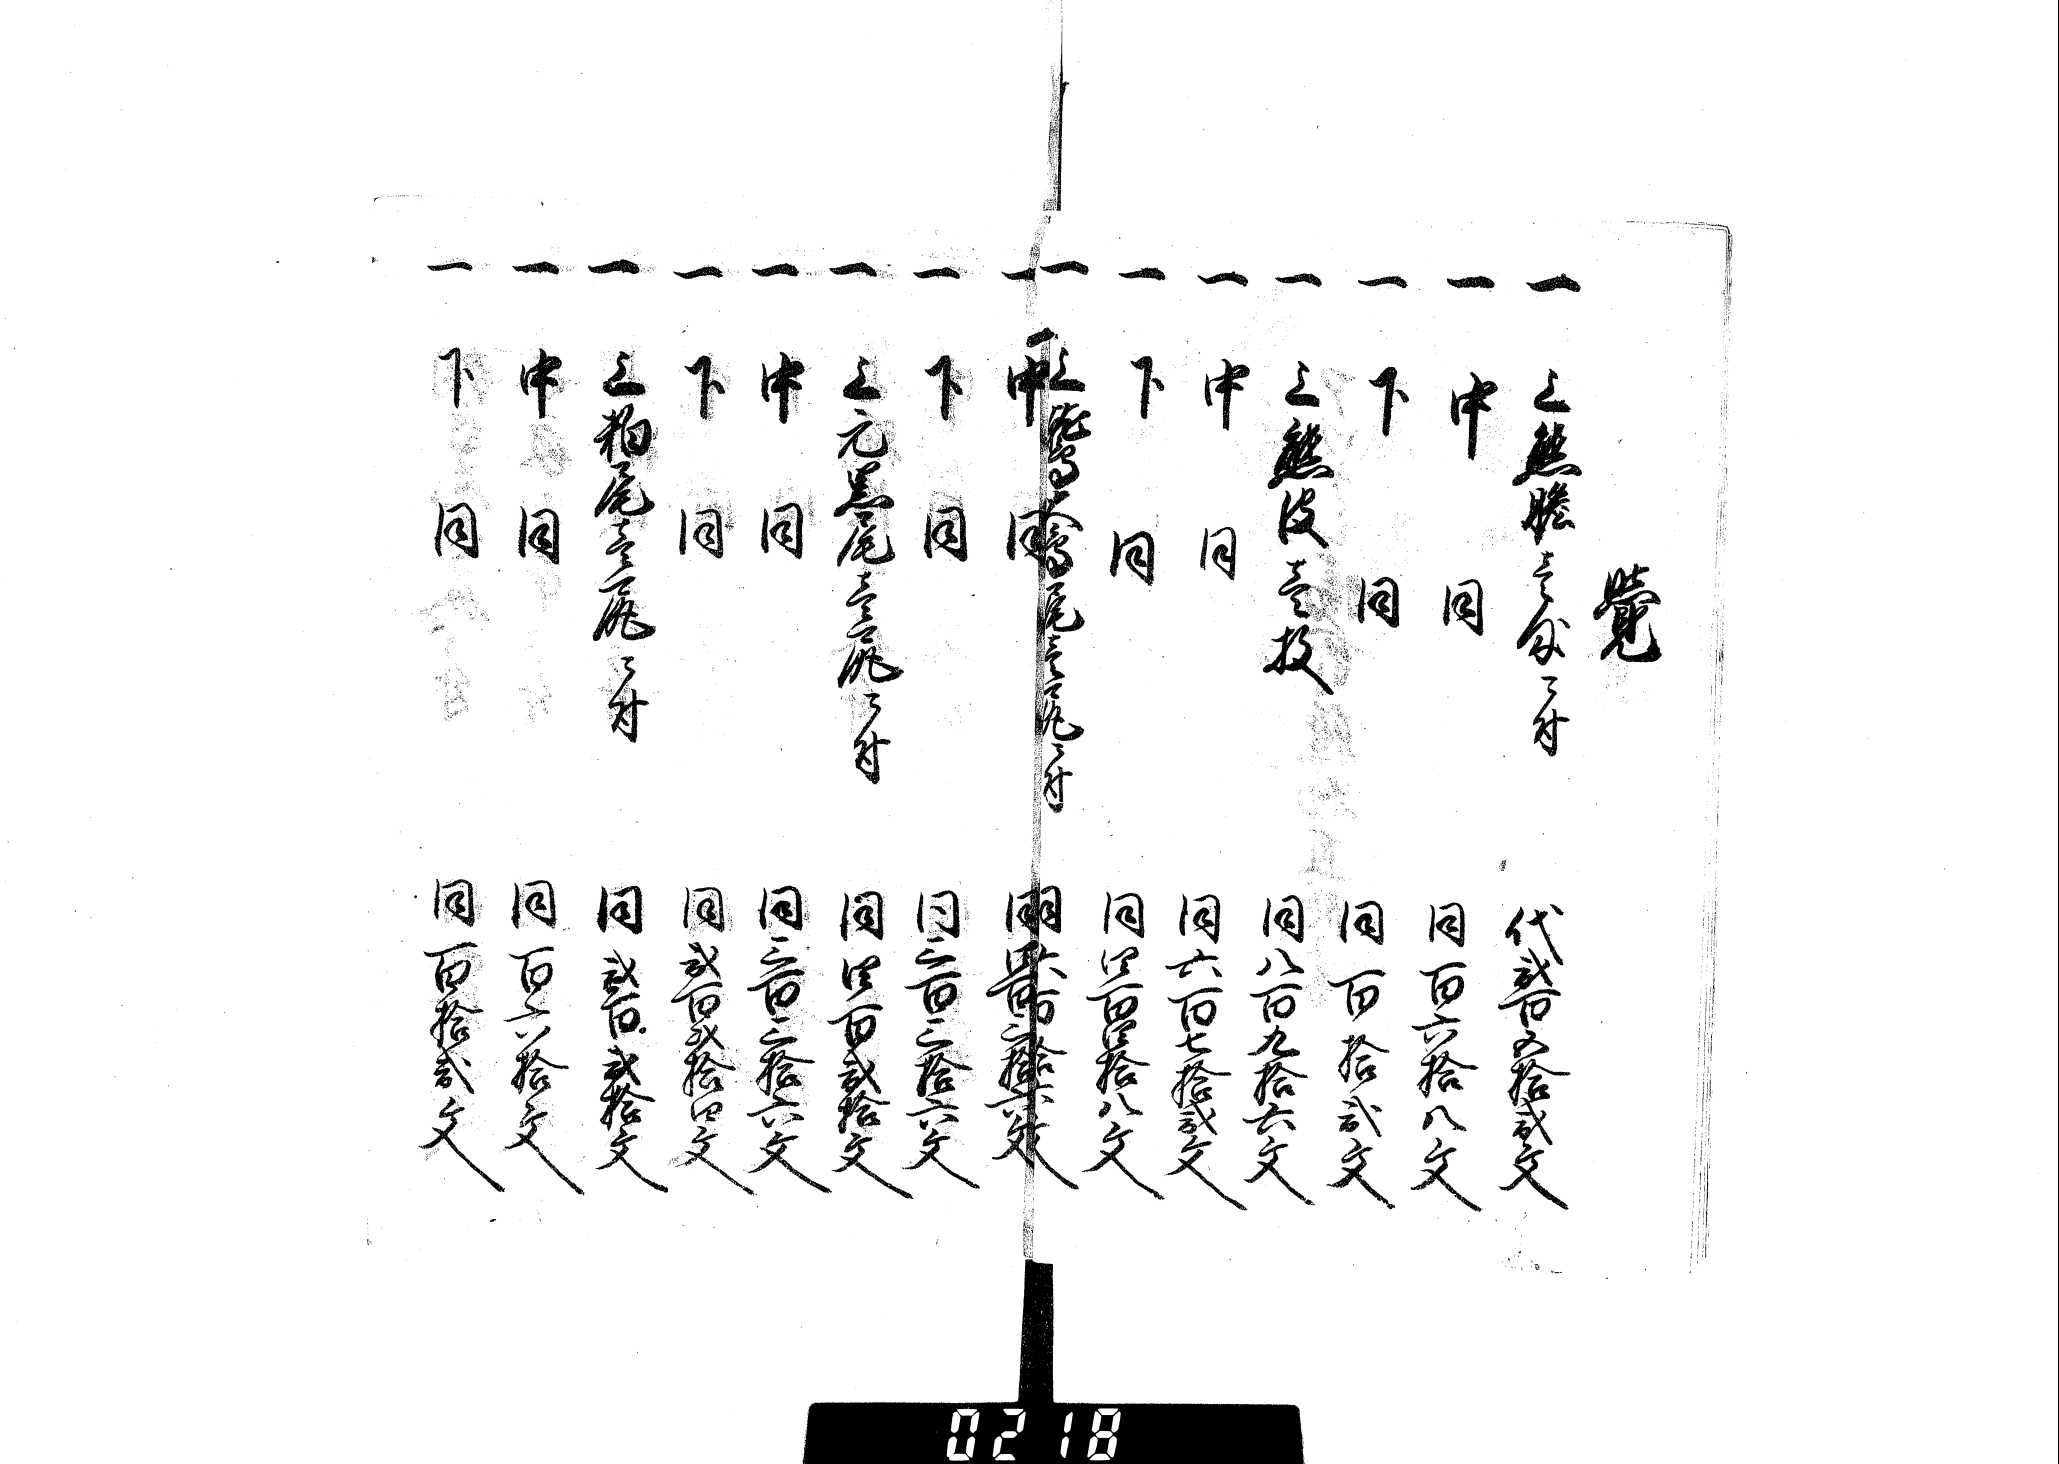 覚
一 上熊膽壱匁ニ付 代弐百五拾弐文
一 中 同 同百六拾八文
一 下 同 同百拾弐文
一 上熊皮壱枚 同八百九拾六文
一 中 同 同六百七拾弐文
一 下 同 同四百四拾八文
一 上鷲尾壱尻ニ付 同六百
一 中 同 同
一 下 同 同三百三拾六文
一 上元黒尾壱尻ニ付 同四百弐拾文
一 中 同 同三百三拾六文
一 下 同 同弐百弐拾四文
一 上粕尾壱尻ニ付 同弐百弐拾文
一 中 同 同百六拾文
一 下 同 同百拾弐文
0218